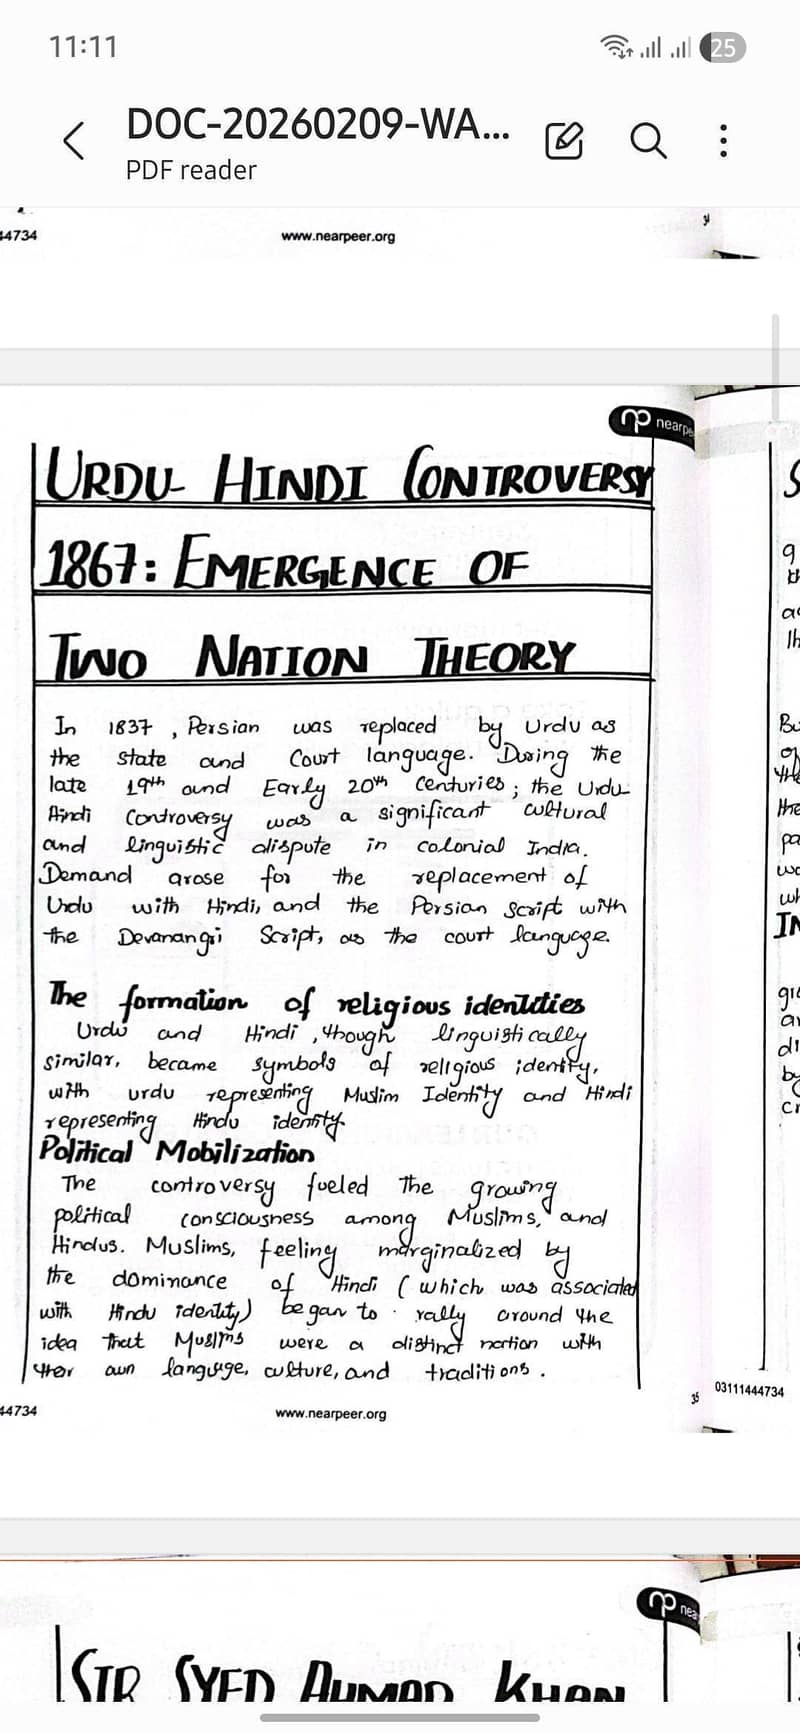 11:11
25
DOC-20260209-WA...
PDF reader
44734
www.nearpeer.org
nearpe
URDU HINDI CONTROVERSY
1867: EMERGENCE OF
TWO NATION THEORY
In 1837, Persian was replaced by Urdu as
the state and Court language. During the
late 19th and Early 20th Centuries; the Urdu
Hindi Controversy was a significant cultural
and linguistic dispute in colonial India.
Demand arose for the replacement of
Urdu with Hindi, and the Persian Script with
the Devanangri Script, as the court language.
The formation of religious identities
Urdu and Hindi, though linguistically
similar, became symbols of religious identity,
with urdu representing Muslim Identity and Hindi
representing Hindu identity.
Political Mobilization
The controversy fueled the growing
political consciousness among Muslims, and
Hindus. Muslims, feeling marginalized by
the dominance of Hindi (which was associated
with Hindu identity) began to rally around the
idea that Muslims were a distinct nation with
their own language, culture, and traditions.
44734
www.nearpeer.org
35
03111444734
nea
SIR SYED AHMAD KHAN